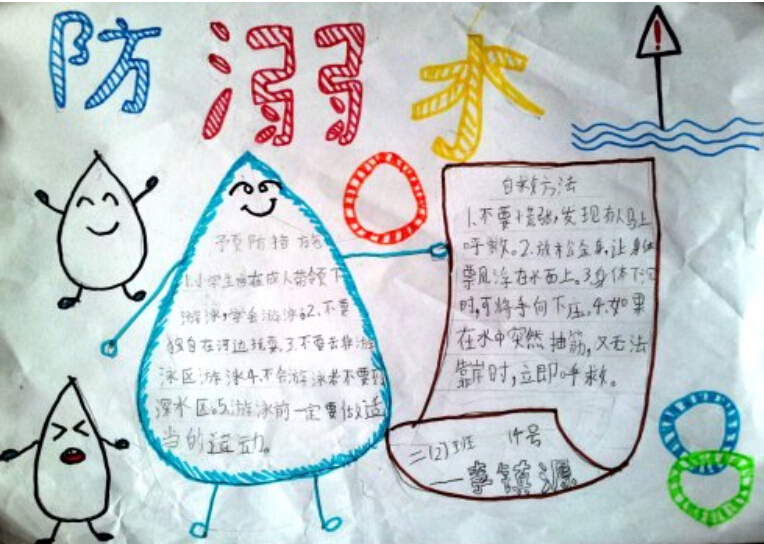 防溺水
!
预防措施
1.小学生应在成人带领下
游泳,学会游泳。2.不要
独自在河边玩耍.3.不要去非游
泳区游泳4.不会游泳者不要到
深水区。5.游泳前一定要做适
当的运动。
自救方法
1.不要慌张,发现有人马上
呼救。2.放松全身,让身体
漂浮在水面上。3.身体下沉
时,可将手向下压。4.如果
在水中突然抽筋,又无法
靠岸时,立即呼救。
二(2)班 14号
李镇源